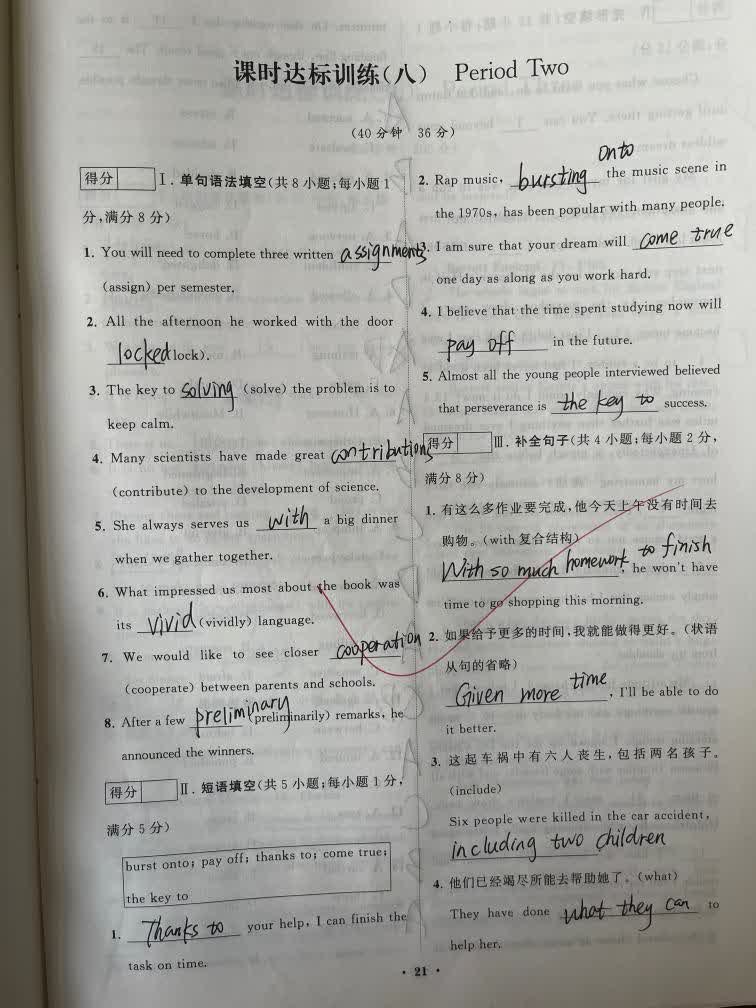 课时达标训练(八) Period Two
(40分钟 36分)
得分 Ⅰ.单句语法填空(共8小题;每小题1
分,满分8分)
1. You will need to complete three written assignments
(assign) per semester.
2. All the afternoon he worked with the door
locked lock).
3. The key to solving (solve) the problem is to
keep calm.
4. Many scientists have made great contributions
(contribute) to the development of science.
5. She always serves us with a big dinner
when we gather together.
6. What impressed us most about the book was
its vivid (vividly) language.
7. We would like to see closer cooperation
(cooperate) between parents and schools.
8. After a few preliminary (preliminarily) remarks, he
announced the winners.
得分 Ⅱ.短语填空(共5小题;每小题1分,
满分5分)
burst onto; pay off; thanks to; come true;
the key to
1. Thanks to your help, I can finish the
task on time.
2. Rap music, bursting onto the music scene in
the 1970s, has been popular with many people.
3. I am sure that your dream will come true
one day as along as you work hard.
4. I believe that the time spent studying now will
pay off in the future.
5. Almost all the young people interviewed believed
that perseverance is the key to success.
得分 Ⅲ.补全句子(共4小题;每小题2分,
满分8分)
1. 有这么多作业要完成,他今天上午没有时间去
购物。(with复合结构)
With so much homework to finish, he won't have
time to go shopping this morning.
2. 如果给予更多的时间,我就能做得更好。(状语
从句的省略)
Given more time, I'll be able to do
it better.
3. 这起车祸中有六人丧生,包括两名孩子。
(include)
Six people were killed in the car accident,
including two children
4. 他们已经竭尽所能去帮助她了。(what)
They have done what they can to
help her.
· 21 ·